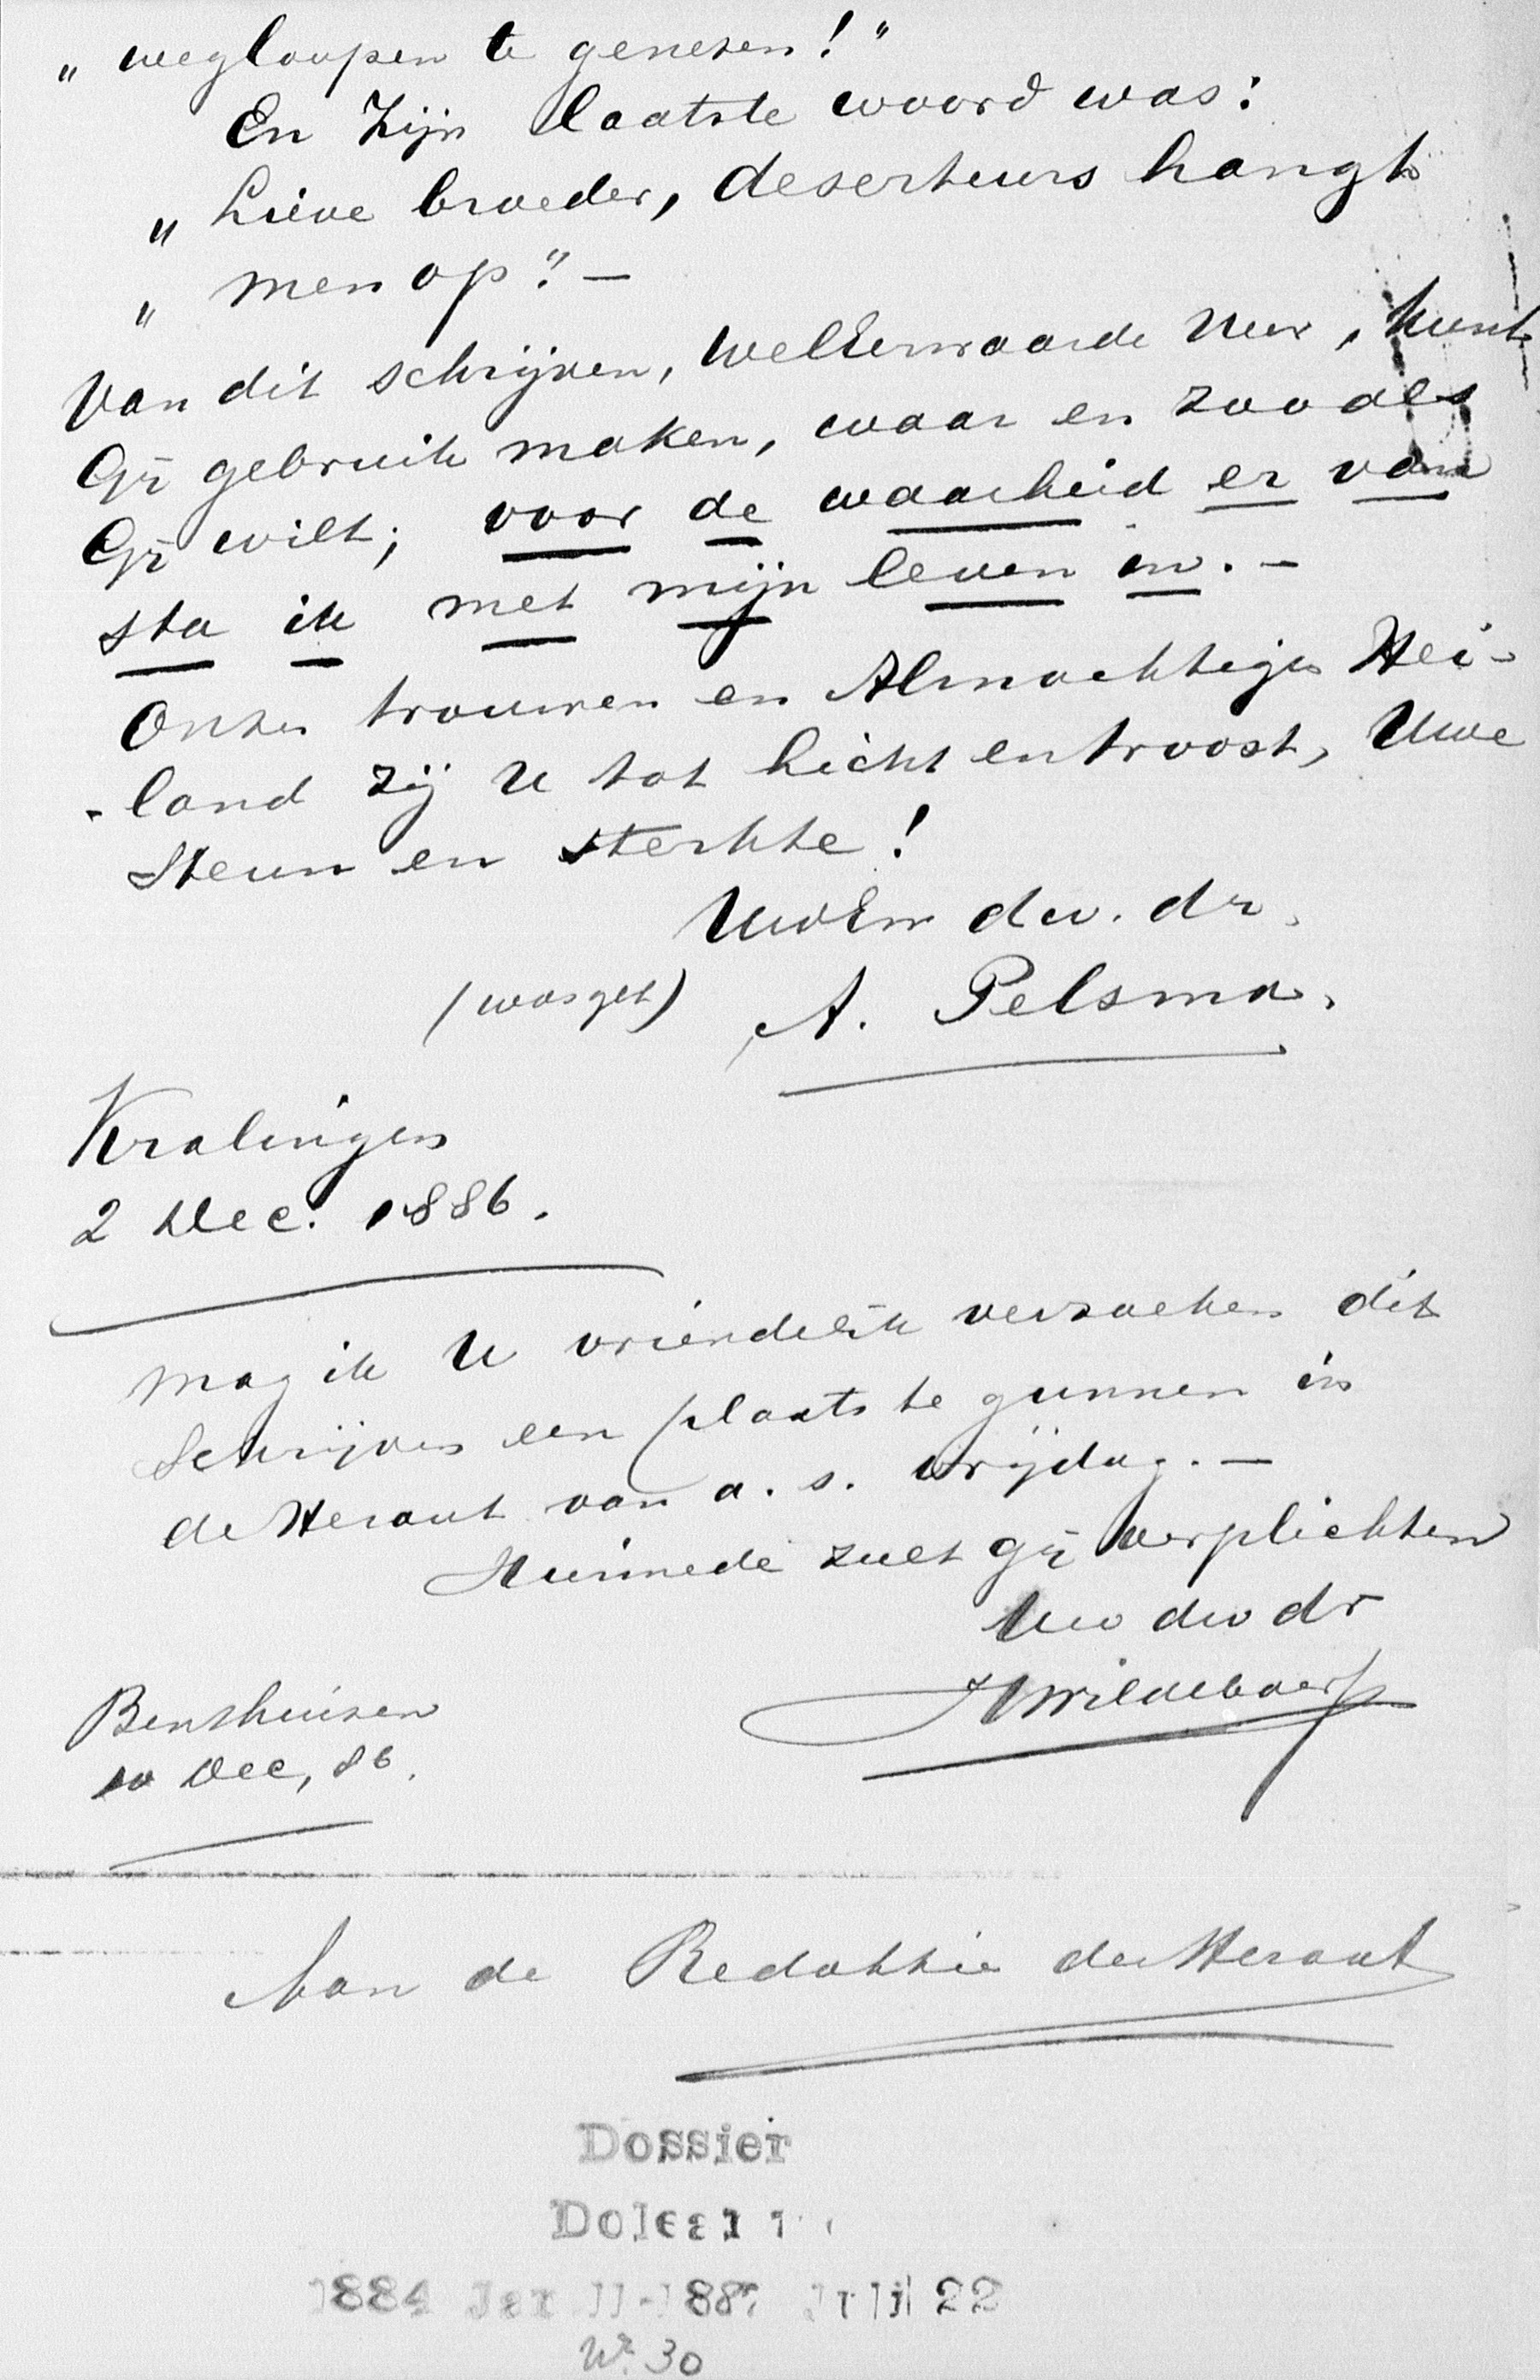 „ wegloopen te genezen!"
En Zijn laatste woord was:
„ Lieve broeder, deserteurs hangt
„ men op". —
Van dit schrijven, WelEerwaarde Heer, kunt
Gij gebruik maken, waar en zooals
Gij wilt; voor de waarheid er van
sta ik met mijn leven in. —
Onze trouwen en Almachtigen Hei-
-land zij U tot licht en troost, Uwe
Steun en sterkte!
UwEw dw. dr.
(was get) A. Pelsma.
Kralingen
2 Dec. 1886.
Mag ik U vriendelijk verzoeken dit
Schrijven een plaats te gunnen in
de Heraut van a. s. Vrijdag. —
Hiermede zult gij verplichten
Uw dw dr
Benthuizen
10 Dec, 86.
HWildeboer
Aan de Redaktie der Heraut
Dossier
1884 Jan 11-1887 Juli 22
No. 30